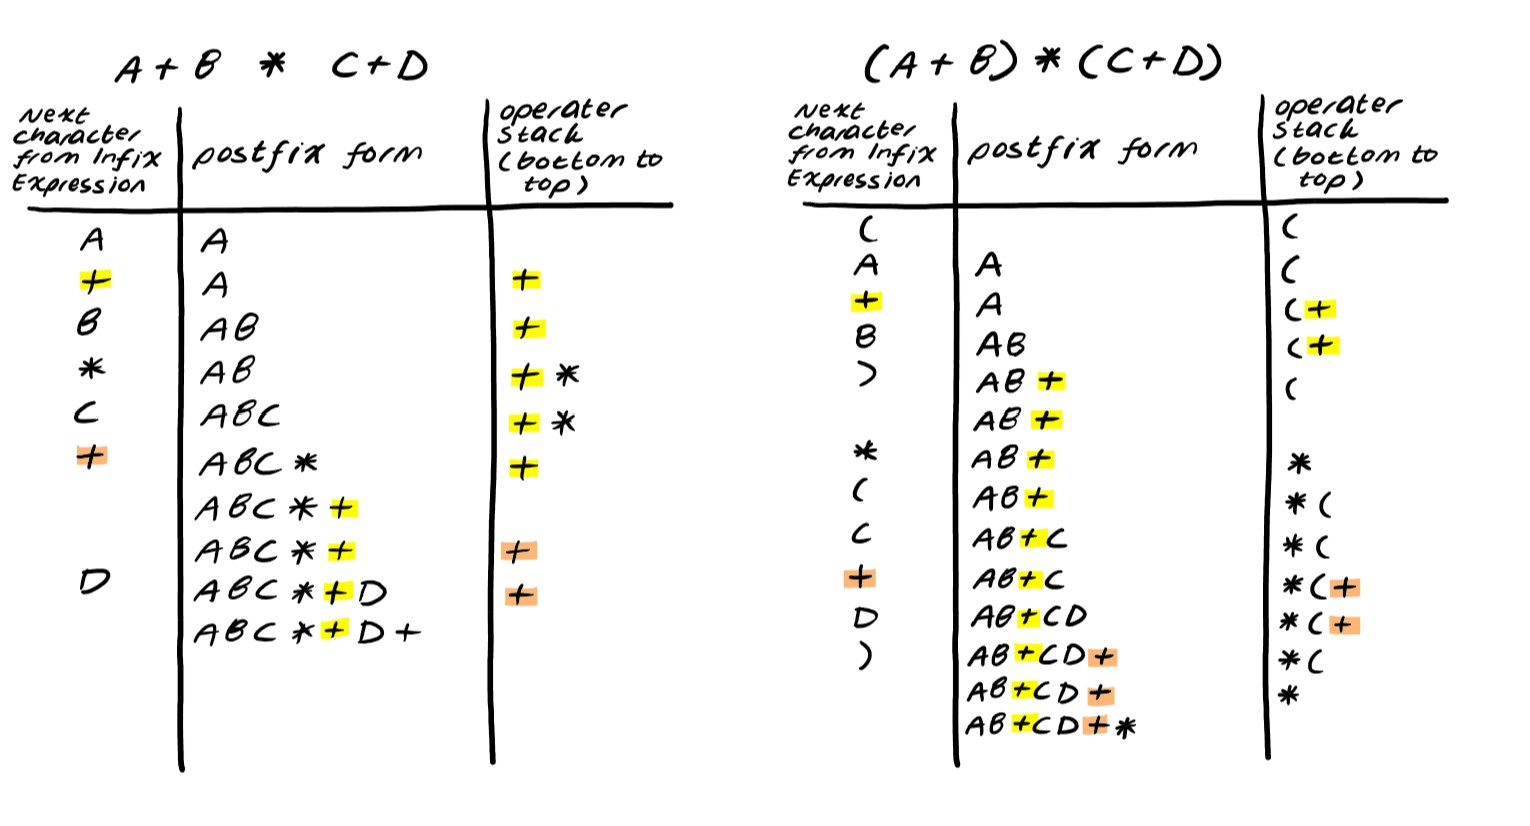 A + B * C + D
Next
character
from Infix
Expression
postfix form
operater
stack
(bottom to
top)
A A
+ A +
B AB +
* AB + *
C ABC + *
+ ABC * +
ABC * +
ABC * + +
D ABC * + D +
ABC * + D +
(A + B) * (C + D)
Next
character
from Infix
Expression
postfix form
operater
stack
(bottom to
top)
( (
A A (
+ A ( +
B AB ( +
) AB + (
AB +
* AB + *
( AB + * (
C AB + C * (
+ AB + C * ( +
D AB + CD * ( +
) AB + CD + * (
AB + CD + *
AB + CD + *